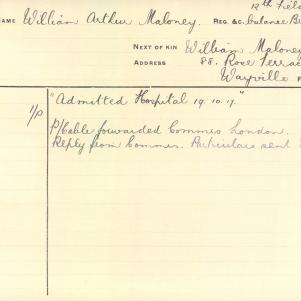 12th Field
NAME William Arthur Maloney. REG &C. bulance B
NEXT OF KIN William Maloney
ADDRESS 88. Rose Terrac
Wayville
"Admitted Hospital 19.10.17."
P/Cable forwarded Commrs London.
Reply from Commrs. Particulars sent